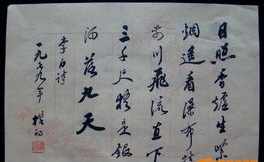 日照香炉生紫
烟遥看瀑布挂
前川飞流直下
三千尺疑是银
河落九天
李白诗